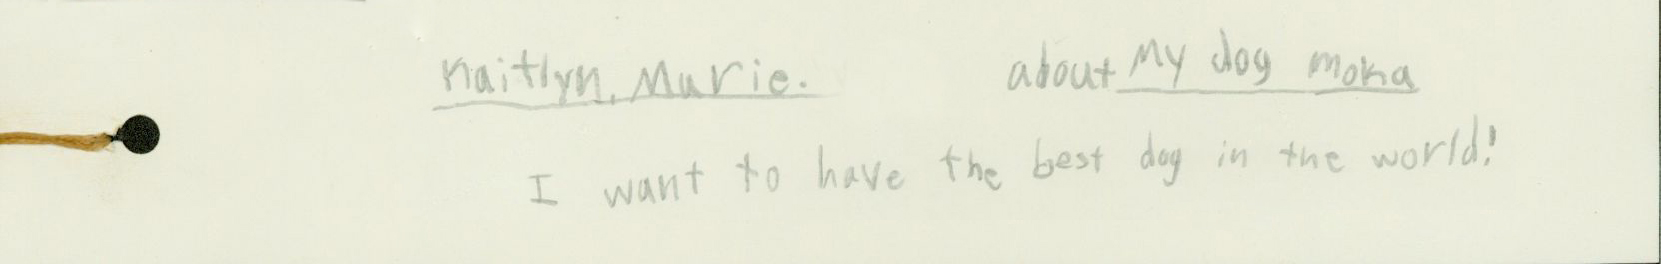 Kaitlyn, Marie. about My dog moka
I want to have the best dog in the world!